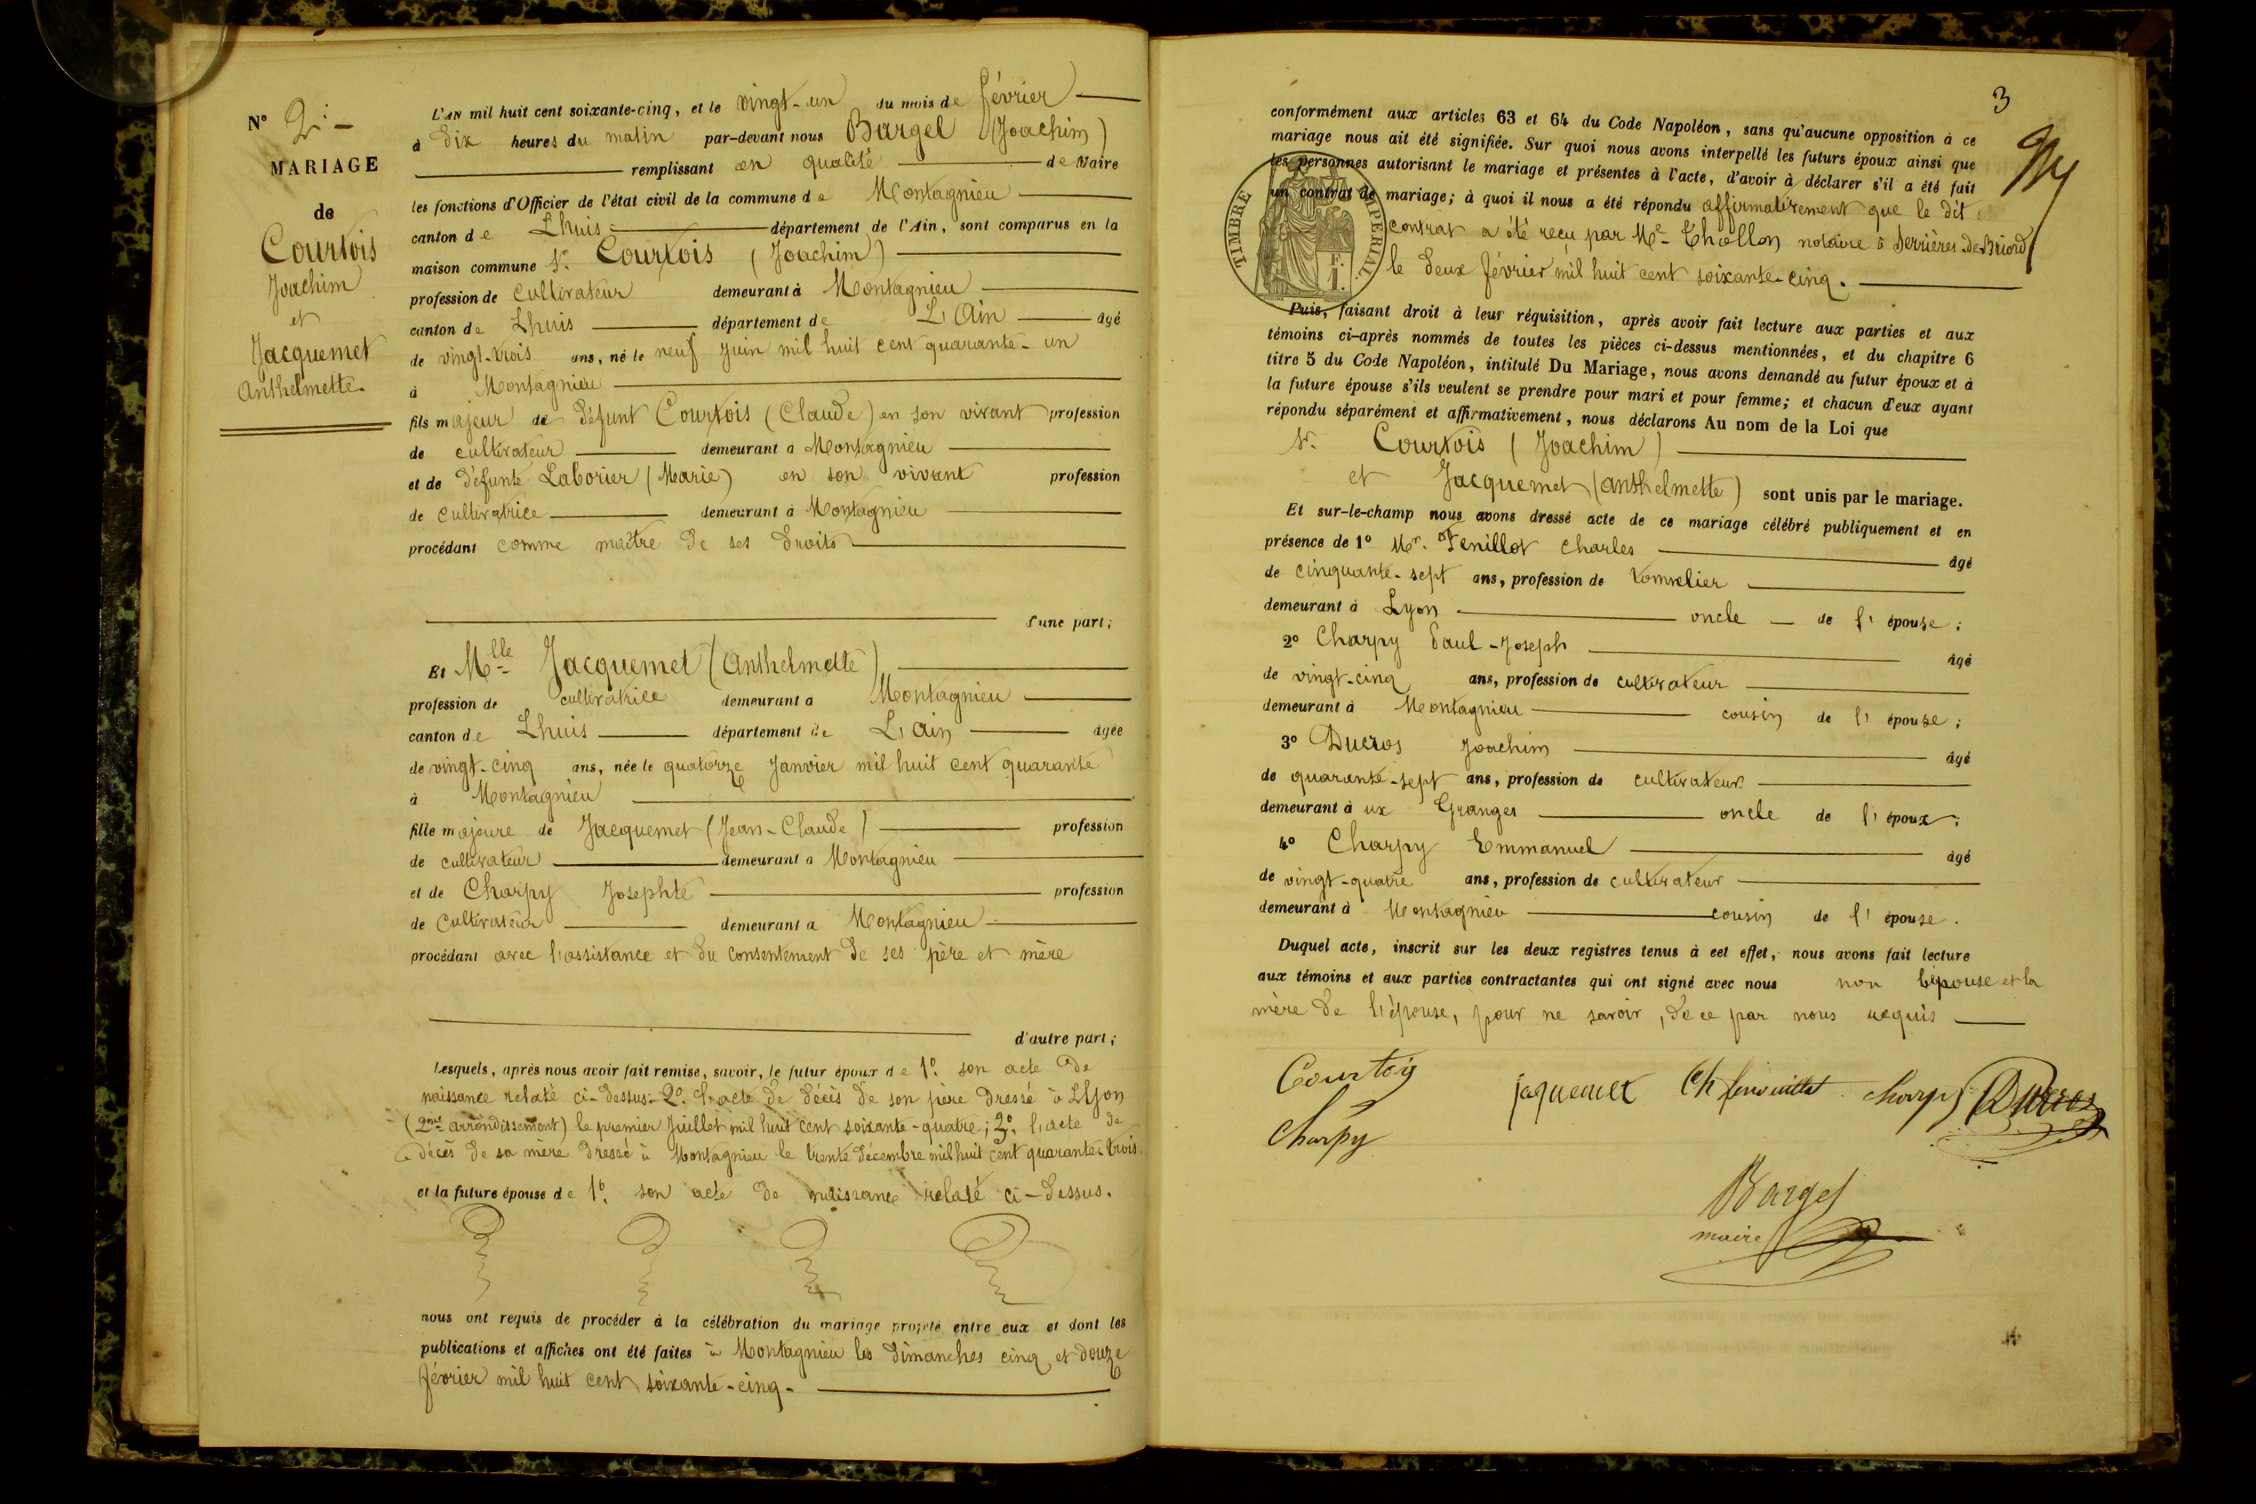 N° 2.
MARIAGE
de
Courtois
Joachim
et
Jacquemet
Anthelmette.
L'AN mil huit cent soixante-cinq, et le vingt-un du mois de février
à dix heures du matin par-devant nous Bargel (Joachim)
remplissant en qualité de Maire
les fonctions d'Officier de l'état civil de la commune de Montagnieu
canton de Lhuis département de l'Ain, sont comparus en la
maison commune Sr. Courtois (Joachim)
profession de cultivateur demeurant à Montagnieu
canton de Lhuis département de L'Ain âgé
de vingt-trois ans, né le neuf Juin mil huit cent quarante-un
à Montagnieu
fils majeur de défunt Courtois (Claude) en son vivant profession
de cultivateur demeurant a Montagnieu
et de défunte Laborier (Marie) en son vivant profession
de cultivatrice demeurant à Montagnieu
procédant comme maître de ses droits
d'une part;
Et Mlle Jacquemet (Anthelmette)
profession de cultivatrice demeurant a Montagnieu
canton de Lhuis département de L'Ain agée
de vingt-cinq ans, née le quatorze Janvier mil huit cent quarante
à Montagnieu
fille majeure de Jacquemet (Jean-Claude) profession
de cultivateur demeurant a Montagnieu
et de Charpy Josephte profession
de Cultivateur demeurant a Montagnieu
procédant avec l'assistance et du consentement de ses père et mère
d'autre part;
Lesquels, après nous avoir fait remise, savoir, le futur époux de 1°. son acte de
naissance relaté ci-dessus. 2°. l'acte de décès de son père dressé à Lyon
(2me arrondissement) le premier Juillet mil huit cent soixante-quatre; 3°. l'acte de
décès de sa mère dressé à Montagnieu le trente décembre mil huit cent quarante-trois.
et la future épouse de 1°. son acte de naissance relaté ci-dessus.
nous ont requis de procéder à la célébration du mariage projeté entre eux et dont les
publications et affiches ont été faites à Montagnieu les dimanches cinq et douze
février mil huit cent soixante-cinq.
3
conformément aux articles 63 et 64 du Code Napoléon, sans qu'aucune opposition à ce
mariage nous ait été signifiée. Sur quoi nous avons interpellé les futurs époux ainsi que
les personnes autorisant le mariage et présentes à l'acte, d'avoir à déclarer s'il a été fait
un contrat de mariage; à quoi il nous a été répondu affirmativement que le dit
contrat a été reçu par Me Chollon notaire à Serrières-de-Briord
le deux février mil huit cent soixante-cinq.
TIMBRE IMPERIAL
F.
1.
Puis, faisant droit à leur réquisition, après avoir fait lecture aux parties et aux
témoins ci-après nommés de toutes les pièces ci-dessus mentionnées, et du chapitre 6
titre 5 du Code Napoléon, intitulé Du Mariage, nous avons demandé au futur époux et à
la future épouse s'ils veulent se prendre pour mari et pour femme; et chacun d'eux ayant
répondu séparément et affirmativement, nous déclarons Au nom de la Loi que
Sr. Courtois (Joachim)
et Jacquemet (Anthelmette) sont unis par le mariage.
Et sur-le-champ nous avons dressé acte de ce mariage célébré publiquement et en
présence de 1° Mr. Fenillot Charles âgé
de cinquante-sept ans, profession de tonnelier
demeurant à Lyon oncle de l' épouse;
2° Charpy Paul-Joseph âgé
de vingt-cinq ans, profession de cultivateur
demeurant à Montagnieu cousin de l' épouse;
3° Ducros Joachim âgé
de quarante-sept ans, profession de cultivateur
demeurant à ux Granges oncle de l' époux;
4° Charpy Emmanuel âgé
de vingt-quatre ans, profession de cultivateur
demeurant à Montagnieu cousin de l' épouse.
Duquel acte, inscrit sur les deux registres tenus à cet effet, nous avons fait lecture
aux témoins et aux parties contractantes qui ont signé avec nous non l'épouse et la
mère de l'épouse, pour ne savoir, de ce par nous requis
Courtois jaquemet Ch fenouillet charpy Ducros
Charpy
Bargel
maire